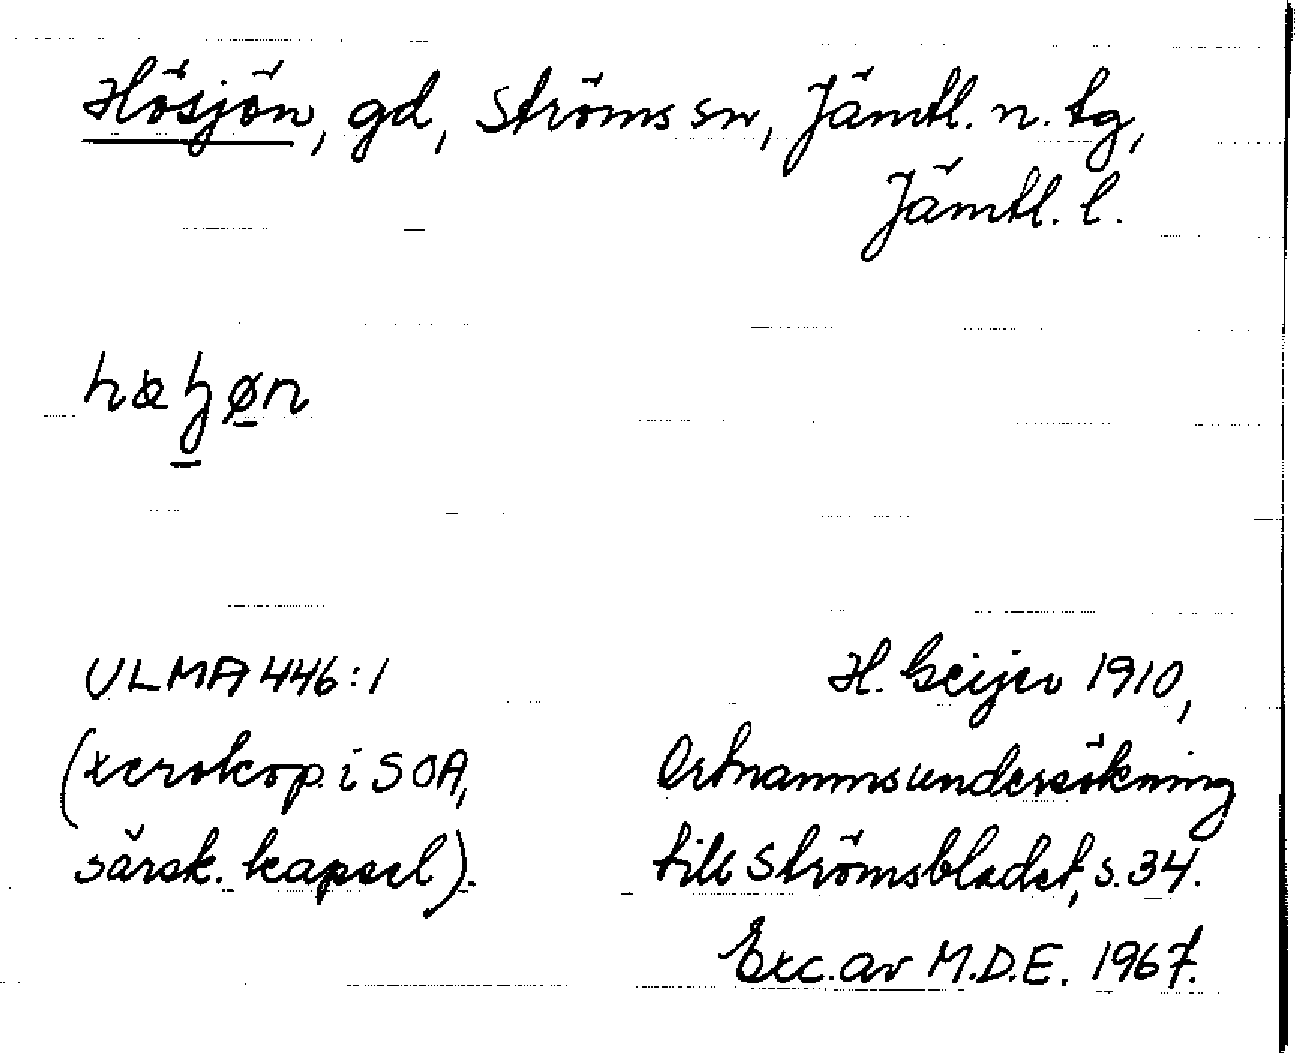 Hösjön, gd, Ströms sn, Jämtl. n. tg,
Jämtl. l.
ULMA 446:1
(xerokop. i SOA,
särsk. kapsel).
H. Geijer 1910,
Ortnamnsundersökning
till Strömsbladet, s. 34.
Exc. av M.D.E. 1967.